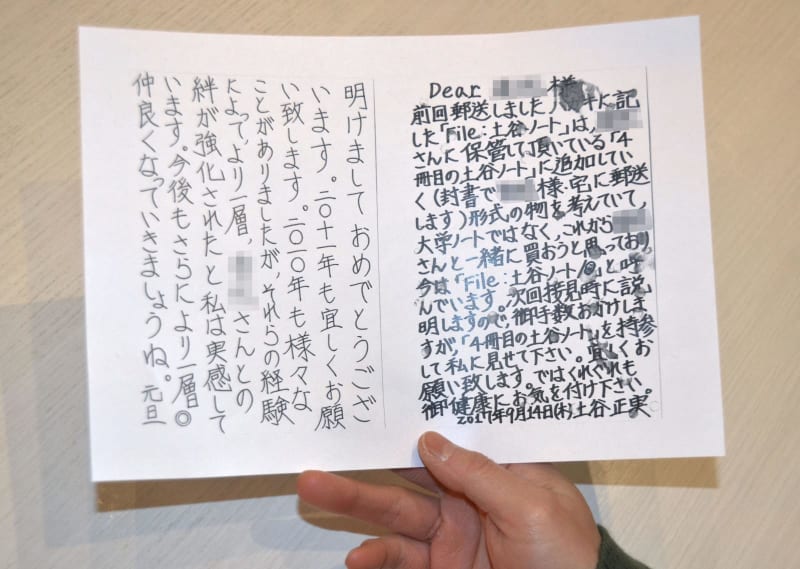 明けましておめでとうござ
います。二〇十一年も宜しくお願
い致します。二〇一〇年も様々な
ことがありましたが、それらの経験
によって、より一層、さんとの
絆が強化されたと私は実感して
います。今後もさらにより一層◎
仲良くなっていきましょうね。 元旦
Dear 様
前回郵送しましたハガキに記
した「File:土谷ノート」は、
さんに保管して頂いている「4
冊目の土谷ノート」に追加してい
く(封書で様宅に郵送
します)形式の物を考えていて、
大学ノートではなく、これから
さんと一緒に買おうと思っており、
今は「File:土谷ノート」と呼
んでいます。次回接見時に説
明しますので、御手数おかけしま
すが、「4冊目の土谷ノート」を持参
して私に見せて下さい。宜しくお
願い致します。ではくれぐれも
御健康にお気を付け下さい。
2017年9月14日(木)土谷正実